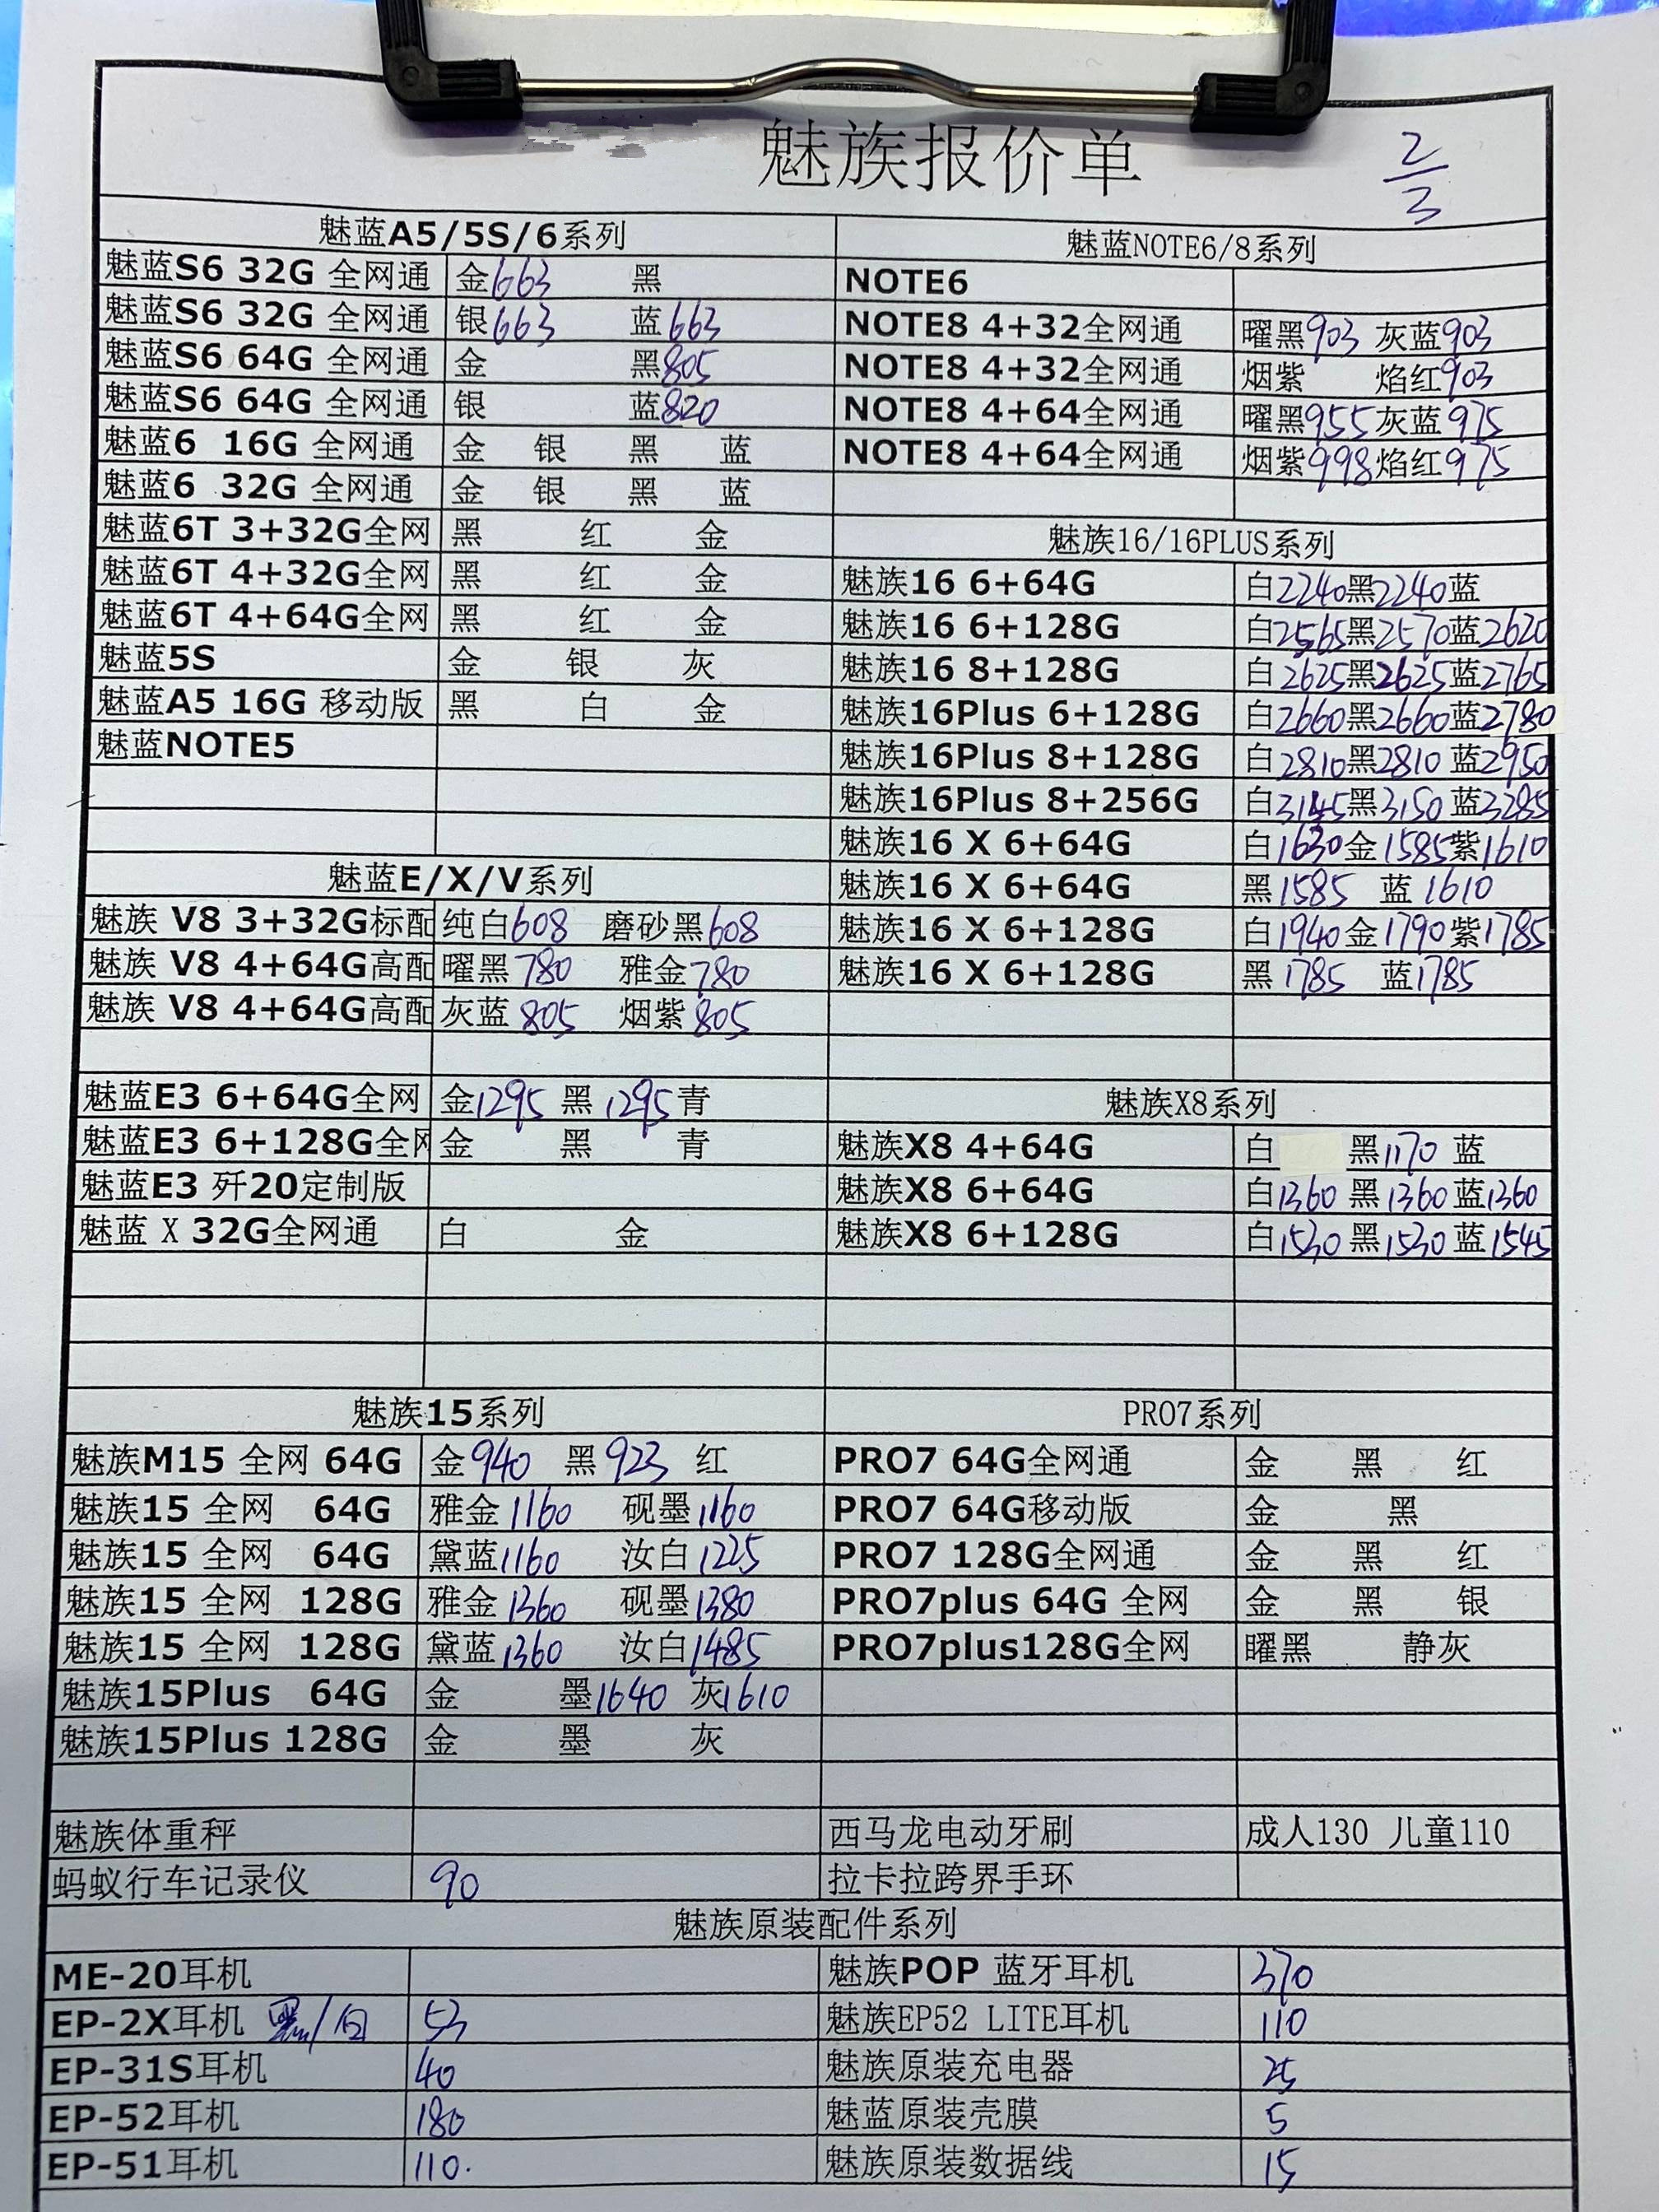 魅族报价单
2/3
魅蓝A5/5S/6系列
魅蓝S6 32G 全网通 金663 黑
魅蓝S6 32G 全网通 银663 蓝663
魅蓝S6 64G 全网通 金 黑805
魅蓝S6 64G 全网通 银 蓝820
魅蓝6 16G 全网通 金 银 黑 蓝
魅蓝6 32G 全网通 金 银 黑 蓝
魅蓝6T 3+32G全网 黑 红 金
魅蓝6T 4+32G全网 黑 红 金
魅蓝6T 4+64G全网 黑 红 金
魅蓝5S 金 银 灰
魅蓝A5 16G 移动版 黑 白 金
魅蓝NOTE5
魅蓝E/X/V系列
魅族 V8 3+32G标配 纯白608 磨砂黑608
魅族 V8 4+64G高配 曜黑780 雅金780
魅族 V8 4+64G高配 灰蓝805 烟紫805
魅蓝E3 6+64G全网 金1295 黑1295 青
魅蓝E3 6+128G全网 金 黑 青
魅蓝E3 歼20定制版
魅蓝 X 32G全网通 白 金
魅蓝NOTE6/8系列
NOTE6
NOTE8 4+32全网通 曜黑903 灰蓝903
NOTE8 4+32全网通 烟紫 焰红903
NOTE8 4+64全网通 曜黑955 灰蓝975
NOTE8 4+64全网通 烟紫998 焰红975
魅族16/16PLUS系列
魅族16 6+64G 白2240 黑2240 蓝
魅族16 6+128G 白2565 黑2570 蓝2620
魅族16 8+128G 白2625 黑2625 蓝2765
魅族16Plus 6+128G 白2660 黑2660 蓝2780
魅族16Plus 8+128G 白2810 黑2810 蓝2950
魅族16Plus 8+256G 白3145 黑3150 蓝3285
魅族16 X 6+64G 白1630 金1585 紫1610
魅族16 X 6+64G 黑1585 蓝1610
魅族16 X 6+128G 白1940 金1790 紫1785
魅族16 X 6+128G 黑1785 蓝1785
魅族X8系列
魅族X8 4+64G 白 黑1170 蓝
魅族X8 6+64G 白1360 黑1360 蓝1360
魅族X8 6+128G 白1530 黑1530 蓝1545
魅族15系列
魅族M15 全网 64G 金940 黑923 红
魅族15 全网 64G 雅金1160 砚墨1160
魅族15 全网 64G 黛蓝1160 汝白1225
魅族15 全网 128G 雅金1360 砚墨1380
魅族15 全网 128G 黛蓝1360 汝白1485
魅族15Plus 64G 金 墨1640 灰1610
魅族15Plus 128G 金 墨 灰
PRO7系列
PRO7 64G全网通 金 黑 红
PRO7 64G移动版 金 黑
PRO7 128G全网通 金 黑 红
PRO7plus 64G 全网 金 黑 银
PRO7plus128G全网 曜黑 静灰
魅族体重秤
西马龙电动牙刷 成人130 儿童110
蚂蚁行车记录仪 90
拉卡拉跨界手环
魅族原装配件系列
ME-20耳机
魅族POP 蓝牙耳机 370
EP-2X耳机 黑/白 53
魅族EP52 LITE耳机 110
EP-31S耳机 40
魅族原装充电器 25
EP-52耳机 180
魅蓝原装壳膜 5
EP-51耳机 110.
魅族原装数据线 15